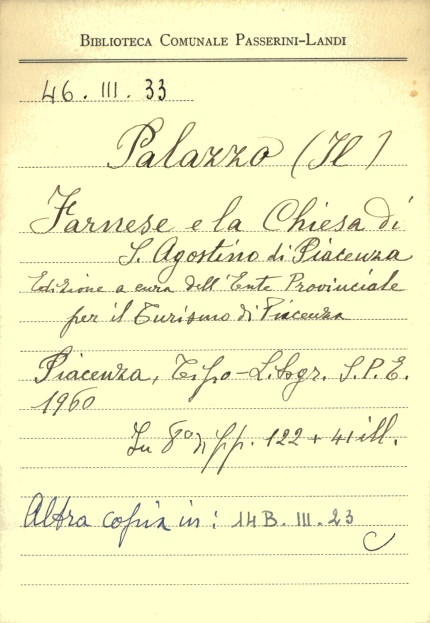 BIBLIOTECA COMUNALE PASSERINI-LANDI
46. III. 33
Palazzo (Il)
Farnese e la Chiesa di
S. Agostino di Piacenza
Edizione a cura dell'Ente Provinciale
per il Turismo di Piacenza
Piacenza, Tipo-Litogr. S.P.E.
1960
In 8° pp. 122 + 41 ill.
Altra copia in: 14B. III. 23